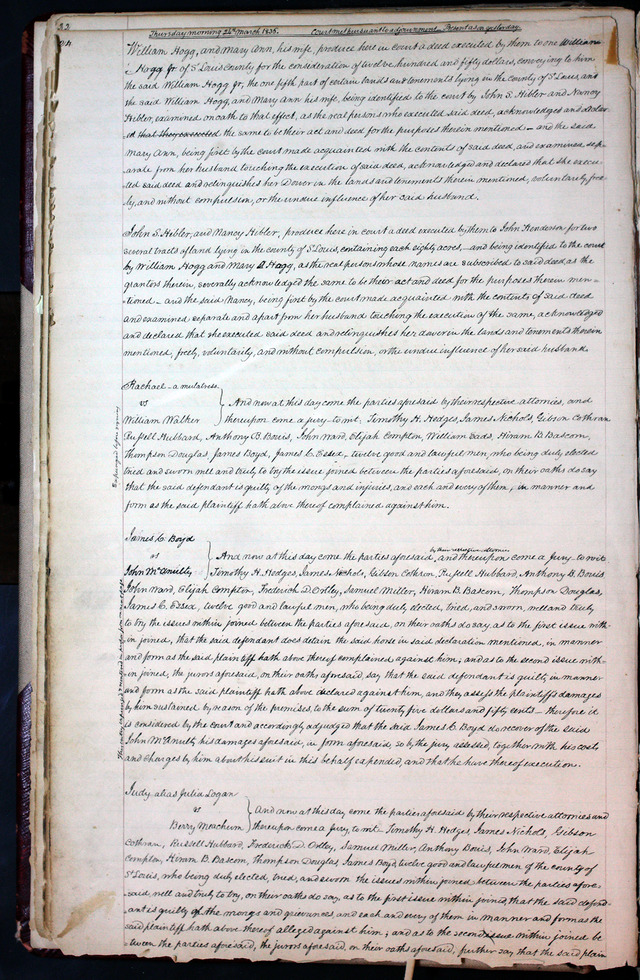 22
Thursday morning 24th March 1836. Court met pursuant to adjournment. Present as on yesterday.
William Hogg, and Mary Ann, his wife, produce here in court a deed executed by them to one William
Hogg Jr of St Louis County for the consideration of twelve hundred and fifty dollars, conveying to him
the said William Hogg Jr, the one fifth part of certain lands and tenements lying in the county of St Louis, and
the said William Hogg, and Mary Ann his wife, being identified to the court by John S. Hibler and Nancy
Hibler, examined on oath to that effect, as the real persons who executed said deed, acknowledged and declar-
ed that they executed the same to be their act and deed for the purposes therein mentioned – and the said
Mary Ann, being first by the court made acquainted with the contents of said deed, and examined sep-
arate from her husband touching the execution of said deed, acknowledged and declared that she execu-
ted said deed and relinquishes her Dower in the lands and tenements therein mentioned, voluntarily, free-
ly, and without compulsion, or the undue influence of her said husband.
John S. Hibler, and Nancy Hibler, produce here in court a deed executed by them to John Henderson for two
several tracts of land lying in the county of St Louis, containing each eighty acres, – and being identified to the court
by William Hogg and Mary A Hogg, as the real persons whose names are subscribed to said deed as the
grantors therein, severally acknowledged the same to be their act and deed for the purposes therein men-
tioned – and the said Nancy, being first by the court made acquainted with the contents of said deed
and examined separate and apart from her husband touching the execution of the same, acknowledged
and declared that she executed said deed and relinquishes her dower in the lands and tenements therein
mentioned, freely, voluntarily, and without compulsion, or the undue influence of her said husband
Rachael – a mulatress
vs } And now at this day come the parties aforesaid by their respective attornies, and
William Walker } thereupon come a jury – to wit: Timothy H. Hedges, James Nichols, Gibson Cothran
Russell Hubbard, Anthony B. Bouis, John Ward, Elijah Compton, William Eads, Hiram B. Bascom,
Thompson Douglas, James Boyd, James C. Essex, twelve good and lawful men, who being duly elected
tried and sworn well and truly to try the issue joined between the parties aforesaid, on their oaths do say
that the said defendant is guilty of the wrongs and injuries, and each and every of them, in manner and
form as the said plaintiff hath above thereof complained against him.
James C. Boyd
vs } And now at this day come the parties aforesaid, by their respective attornies and thereupon come a Jury to wit
John McAnulty } Timothy H. Hedges, James Nichols, Gibson Cothran, Russell Hubbard, Anthony B. Bouis
John Ward, Elijah Compton, Frederick D. Ortley, Samuel Miller, Hiram B. Bascom, Thompson Douglas,
James C. Essex, twelve good and lawful men, who being duly elected, tried, and sworn, well and truly
to try the issues within joined between the parties aforesaid, on their oaths do say, as to the first issue with-
in joined, that the said defendant does detain the said horse in said declaration mentioned, in manner
and form as the said plaintiff hath above thereof complained against him; and as to the second issue with-
in joined, the jurors aforesaid, on their oaths aforesaid, say that the said defendant is guilty in manner
and form as the said plaintiff hath above declared against him, and they assess the plaintiff's damages
by him sustained by reason of the premises, to the sum of twenty five dollars and fifty cents – therefore it
is considered by the court and accordingly adjudged that the said James C. Boyd do recover of the said
John McAnulty his damages aforesaid, in form aforesaid so by the jury assessed, together with his costs
and charges by him about his suit in this behalf expended, and that he have thereof execution.
Judy, alias Julia Logan
vs } And now at this day, come the parties aforesaid by their respective attornies and
Berry Meachum } thereupon come a jury to wit – Timothy H. Hedges, James Nichols, Gibson
Cothran, Russell Hubbard, Frederick D. Ortley, Samuel Miller, Anthony Bouis, John Ward, Elijah
Compton, Hiram B. Bascom, Thompson Douglas, James Boyd, twelve good and lawful men of the county of
St Louis, who being duly elected, tried, and sworn the issues within joined between the parties afore-
said, well and truly to try, on their oaths do say, as to the first issue within joined, that the said defend-
ant is guilty of the wrongs and grievances, and each and every of them in manner and form as the
said plaintiff hath above thereof alleged against him; and as to the second issue within joined be-
tween the parties aforesaid, the jurors aforesaid, on their oaths aforesaid, further say that the said plain